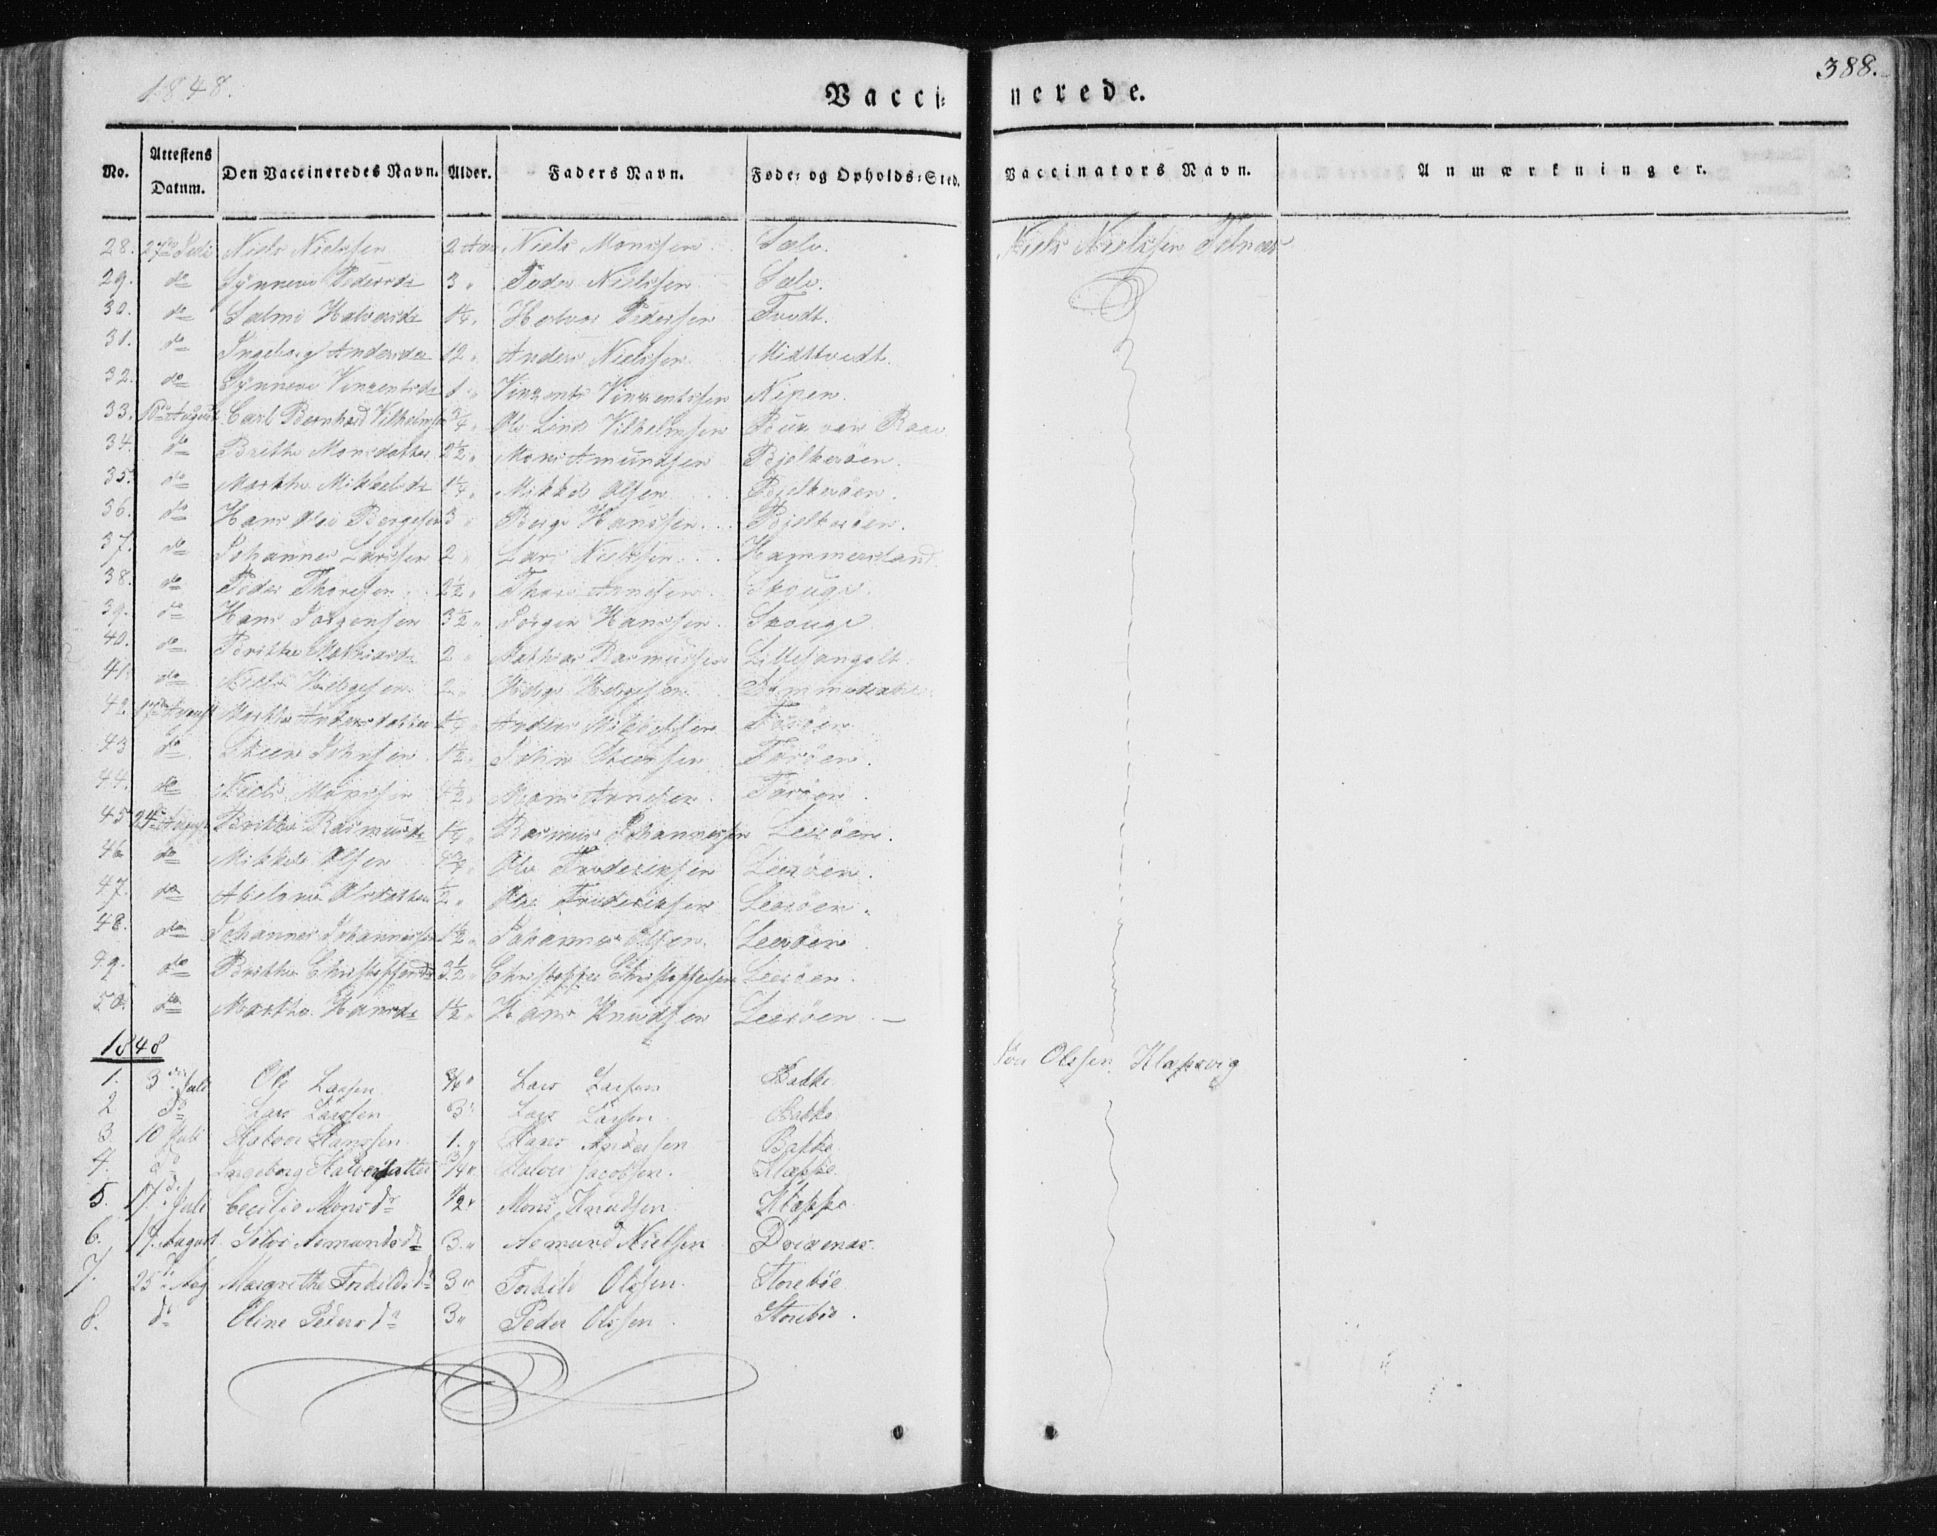 1848.
Vacci-nerede.
388.
No. Attestens Datum. Den Vaccineredes Navn. Alder. Faders Navn. Føde- og Opholds-Sted. Vaccinators Navn. Anmærkninger.
28. 27de Juli Niels Nielssen 2 Aar Niels Monssen Sæle. Niels Nielssen
29. do Synneve Pedersdr 3 " Peder Nielssen Sæle.
30. do Salmi Halvorsdr 1¼ " Halvor Pedersen Tvedt.
31. do Ingeborg Andersdr 12 " Anders Nielssen Midttvedt
32. do Synneve Vinzentsdr 1 " Vinzents Vinzentssen Nipen.
33. 10de August Carl Bernhard Vilhelmsen ¾ " Ole Lind Vilhelmsen
34. do Brithe Monsdatter 2½ " Mons Amundsen Bjelkerøen.
35. do Marthe Mikkelsdr 1¼ " Mikkel Olsen Bjelkerøen.
36. do Hans Olai Børgesen 3 " Børge Hanssen Bjelkerøen.
37. do Johannes Larssen 2 " Lars Nielssen Hammersland
38. do Peder Thoresen 2½ " Thore Arnesen Skouge.
39. do Hans Jørgensen 3½ " Jørgen Hanssen Skouge
40. do Brithe Mathiasdr 2 " Mathias Rasmussen Lillesangolt.
41. do Niels Helgesen 2 " Helge Helgesen
42. 17de August Marthe Andersdatter 1¼ " Anders Mikkelsen Førøen
43 do Steen Johnsen 1½ " John Steensen Førøen.
44. do Niels Monssen 1½ " Mons Arnesen Førøen.
45 24de August Brithe Rasmusdr 1¼ " Rasmus Johannessen Lerøen.
46 do Mikkel Olsen Ole Frederiksen Lerøen.
47. do Abelone Olsdatter ½ " Ole Frederiksen Lerøen.
48. do Johannes Johannessen 1½ " Johannes Olsen Lerøen
49. do Brithe Christoffersdr 3½ " Christoffer Christoffersen Lerøen.
50. do Marthe Hansdr 1½ " Hans Knudsen Lerøen. —
1848
1. 3die Juli Ole Larsen Lars Larsen Bakke Jon Olssen Klapvig
2 do Lars Larssen 3 " Lars Larsen Bakke
3. 10 Juli Halvor Hanssen 1. " Hans Andersen Bakke
4. do Ingeborg Halvorsdatter ¾ " Halvor Jacobsen. Klappe
5. 17 de Juli Cecilie Monsdr ½ " Mons Knudsen Klappe
6. 17. August Silvi Asmundsdr 3. " Asmund Nielsen Drivenæs
7. 25de Aug Margrethe Torkildsdr 3 " Torkild Olssen. Storebøe
8. do Eline Pedersdr 3 " Peder Olssen Storebøe.